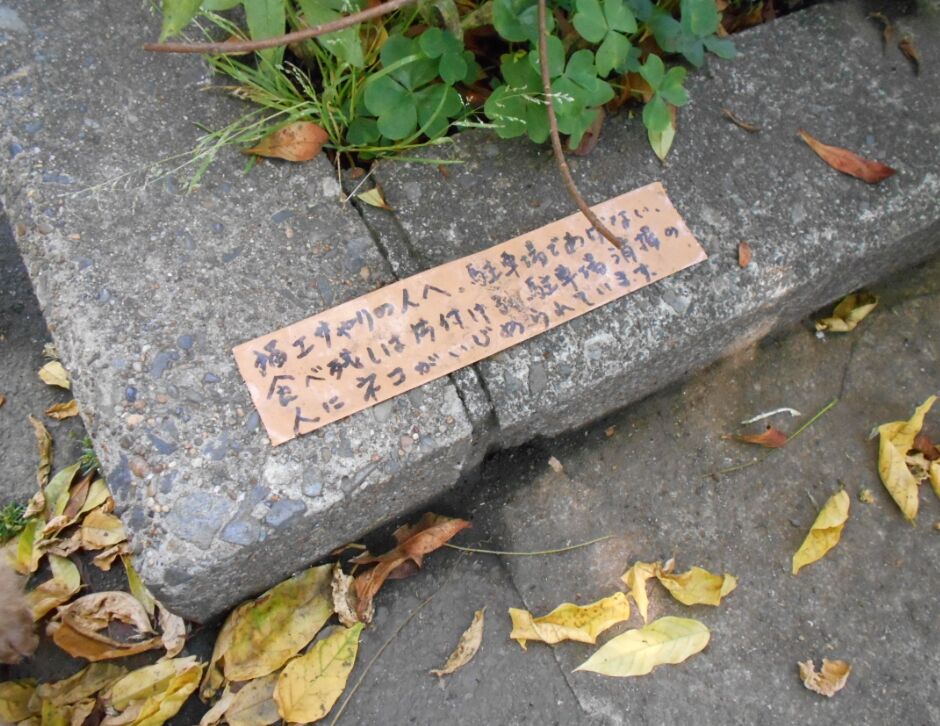 猫エサやりの人へ。駐車場であげない、
食べ残しは片付け 駐車場清掃の
人にネコがいじめられています。